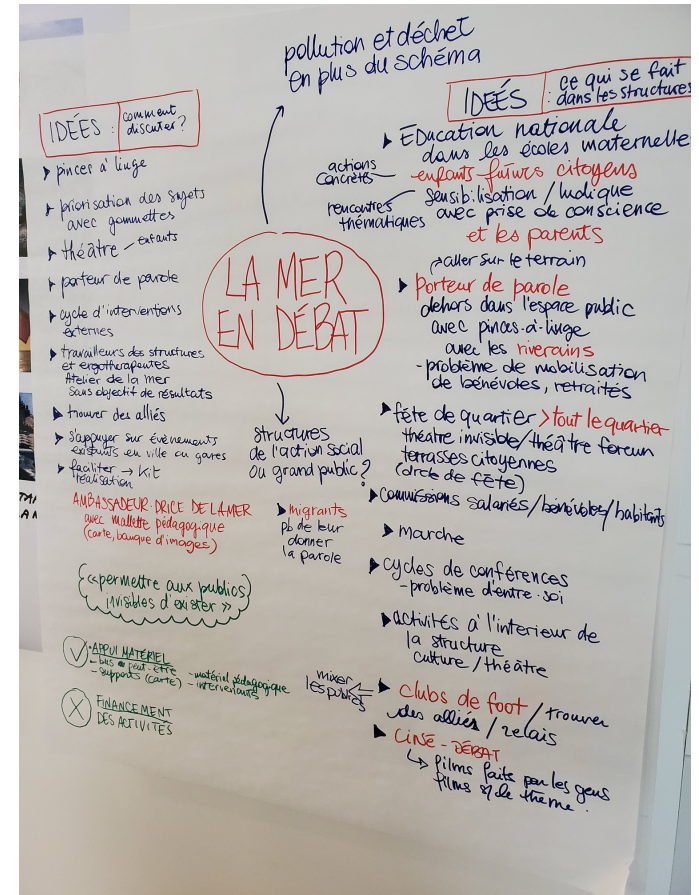 pollution et déchet
en plus du schéma
IDÉES : comment
discuter ?
pinces à linge
priorisation des sujets
avec gommettes
théâtre - enfants
porteur de parole
cycle d'interventions
externes
travailleurs des structures
et ergothérapeutes
Atelier de la mer
sans objectif de résultats
trouver des alliés
s'appuyer sur évènements
existants en ville ou gares
faciliter → Kit
réalisation
AMBASSADEUR·DRICE DE LA MER
avec mallette pédagogique
(carte, banque d'images)
«permettre aux publics
invisibles d'exister»
APPUI MATÉRIEL
- bus peut-être
- supports (carte)
- matériel pédagogique
- intervenants
FINANCEMENT
DES ACTIVITÉS
LA MER
EN DÉBAT
structures
de l'action social
ou grand public ?
migrants
pb de leur
donner
la parole
IDEÉS : ce qui se fait
dans les structures
Education nationale
dans les écoles maternelle
actions
concrètes
enfants-futurs citoyens
rencontres
thématiques
sensibilisation / ludique
avec prise de conscience
et les parents
aller sur le terrain
Porteur de parole
dehors dans l'espace public
avec pinces-à-linge
avec les riverains
- problème de mobilisation
de bénévoles, retraités
fête de quartier > tout le quartier
théatre invisible / théâtre forum
terrasses citoyennes
(droit de fête)
commissions salariés / bénévoles / habitants
marche
cycles de conférences
- problème d'entre-soi
activités à l'interieur de
la structure
culture / théâtre
mixer
les publics
clubs de foot / trouver
des alliés / relais
CINÉ-DÉBAT
↳ films faits par les gens
films s/ le thème.